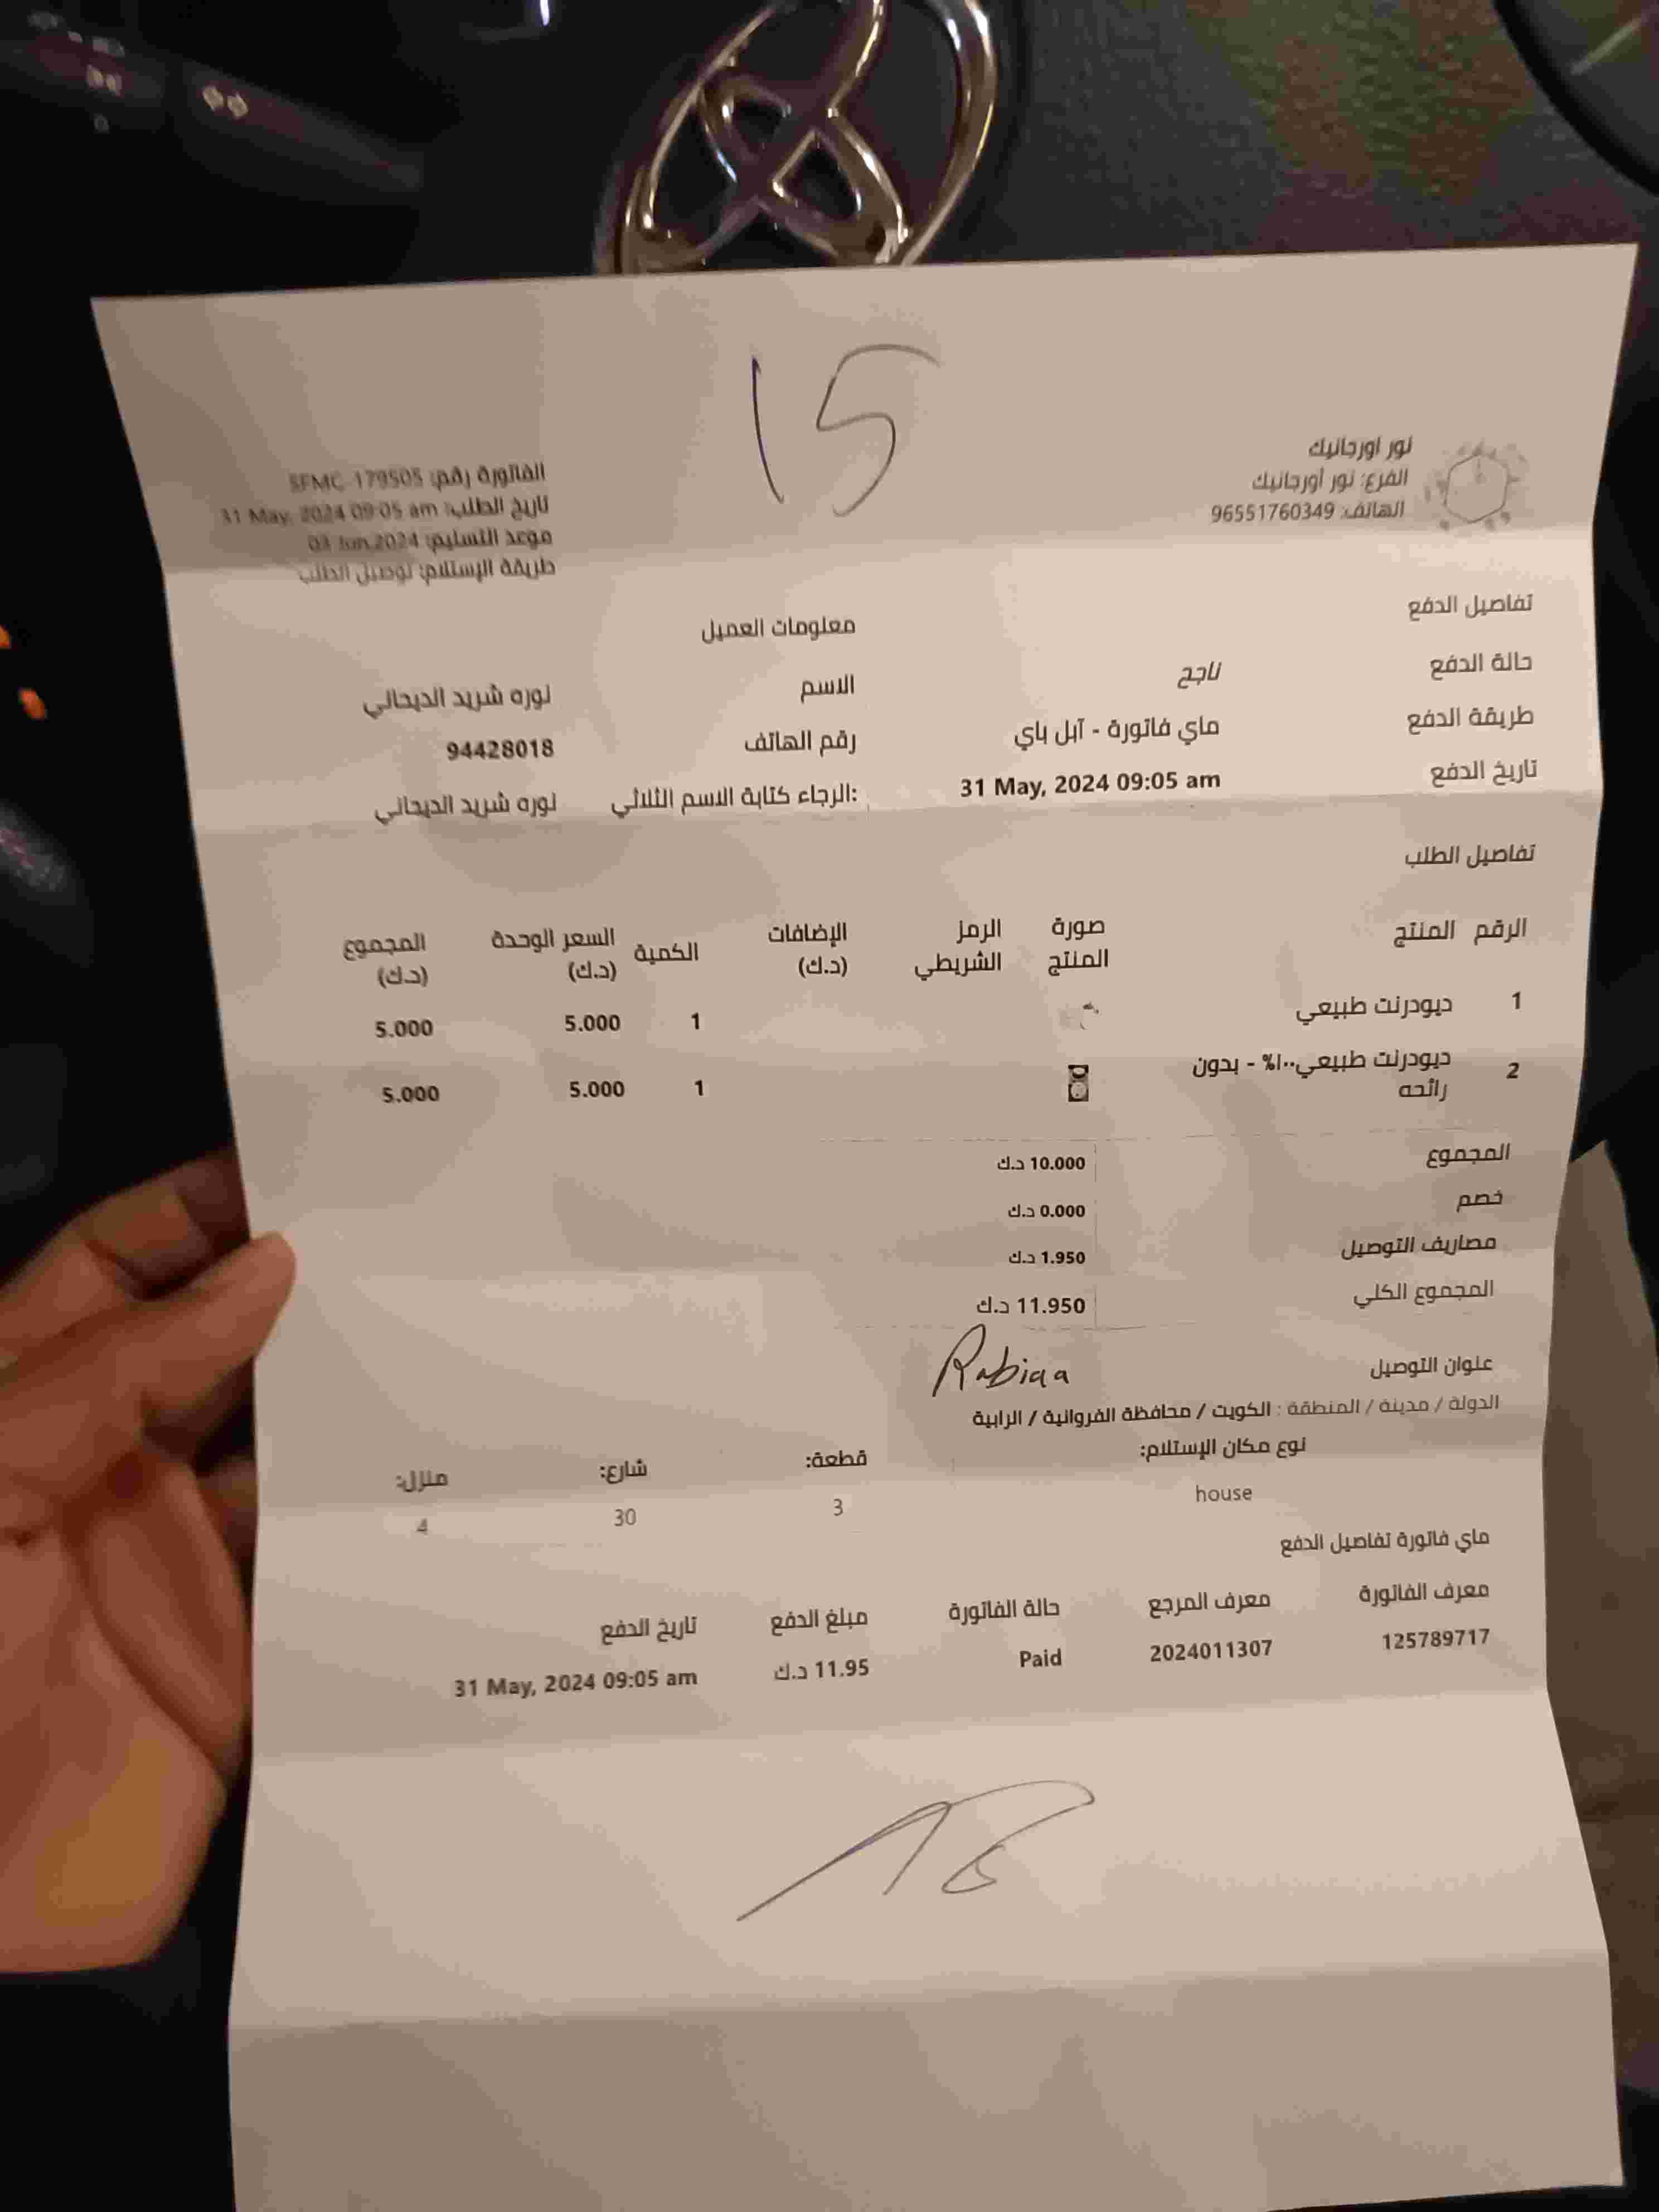 15
نور اورجانيك
الفرع: نور أورجانيك
الهاتف: 96551760349
الفاتورة رقم: SFMC-179505
تاريخ الطلب: 31 May, 2024 09:05 am
موعد التسليم: 03 Jun 2024
طريقة الإستلام: توصيل الطلب
تفاصيل الدفع
حالة الدفع ناجح
طريقة الدفع ماي فاتورة - آبل باي
تاريخ الدفع 31 May, 2024 09:05 am
معلومات العميل
الاسم نوره شريد الديحاني
رقم الهاتف 94428018
الرجاء كتابة الاسم الثلاثي: نوره شريد الديحاني
تفاصيل الطلب
الرقم المنتج صورة المنتج الرمز الشريطي الإضافات (د.ك) الكمية السعر الوحدة (د.ك) المجموع (د.ك)
1 ديودرنت طبيعي 1 5.000 5.000
2 ديودرنت طبيعي١٠٠% - بدون رائحه 1 5.000 5.000
المجموع 10.000 د.ك
خصم 0.000 د.ك
مصاريف التوصيل 1.950 د.ك
المجموع الكلي 11.950 د.ك
Rabiaa
عنوان التوصيل
الدولة / مدينة / المنطقة : الكويت / محافظة الفروانية / الرابية
نوع مكان الإستلام: قطعة: شارع: منزل:
house 3 30 4
ماي فاتورة تفاصيل الدفع
معرف الفاتورة معرف المرجع حالة الفاتورة مبلغ الدفع تاريخ الدفع
125789717 2024011307 Paid 11.95 د.ك 31 May, 2024 09:05 am